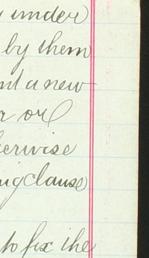 under
by them
nt a new
or
erwise
ing clause
to fix the